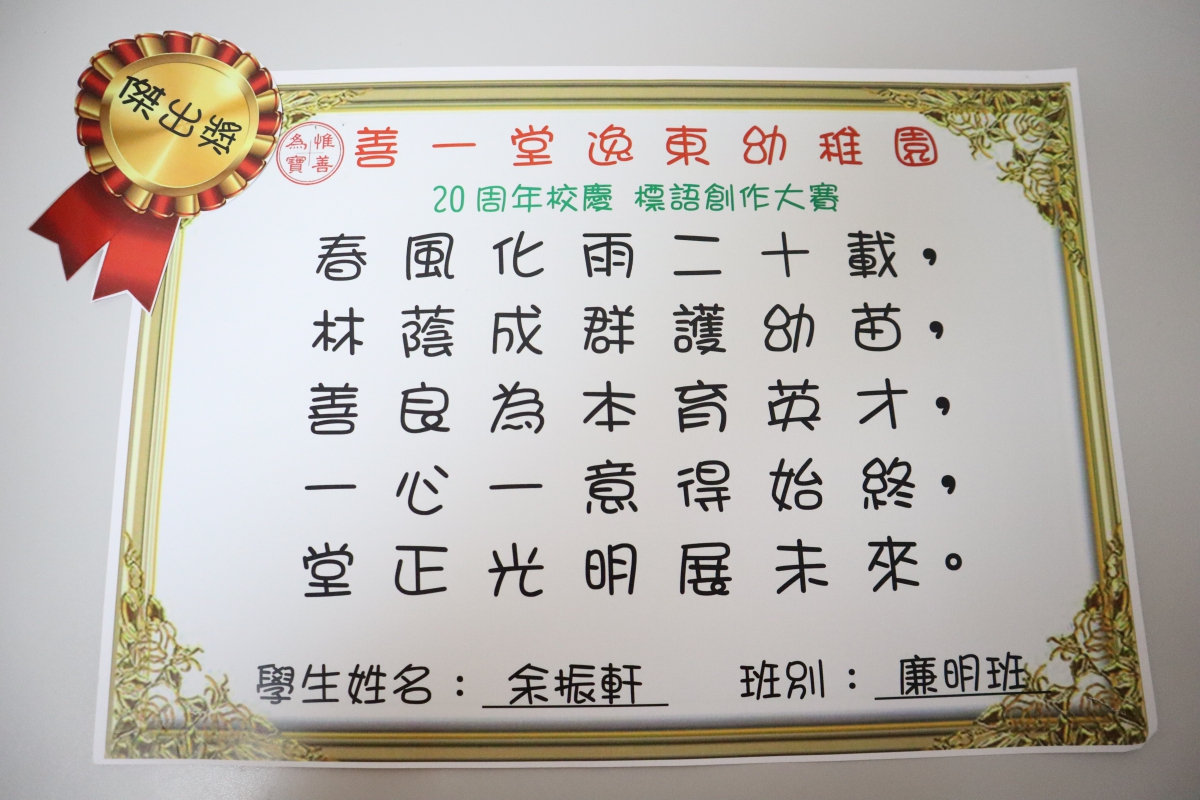 傑出獎
惟善為寶
善一堂逸東幼稚園
20周年校慶 標語創作大賽
春風化雨二十載，
林蔭成群護幼苗，
善良為本育英才，
一心一意得始終，
堂正光明展未來。
學生姓名：余振軒 班別：廉明班